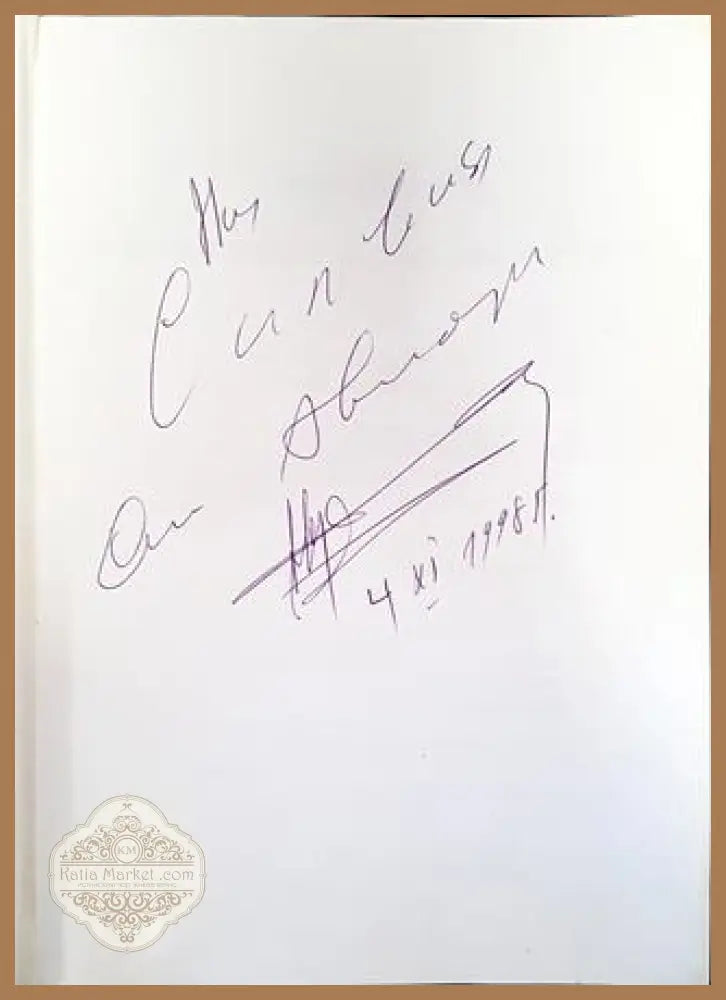 На
Силвия
От автора
4 XI 1998 г.
KM
Katia Market .com